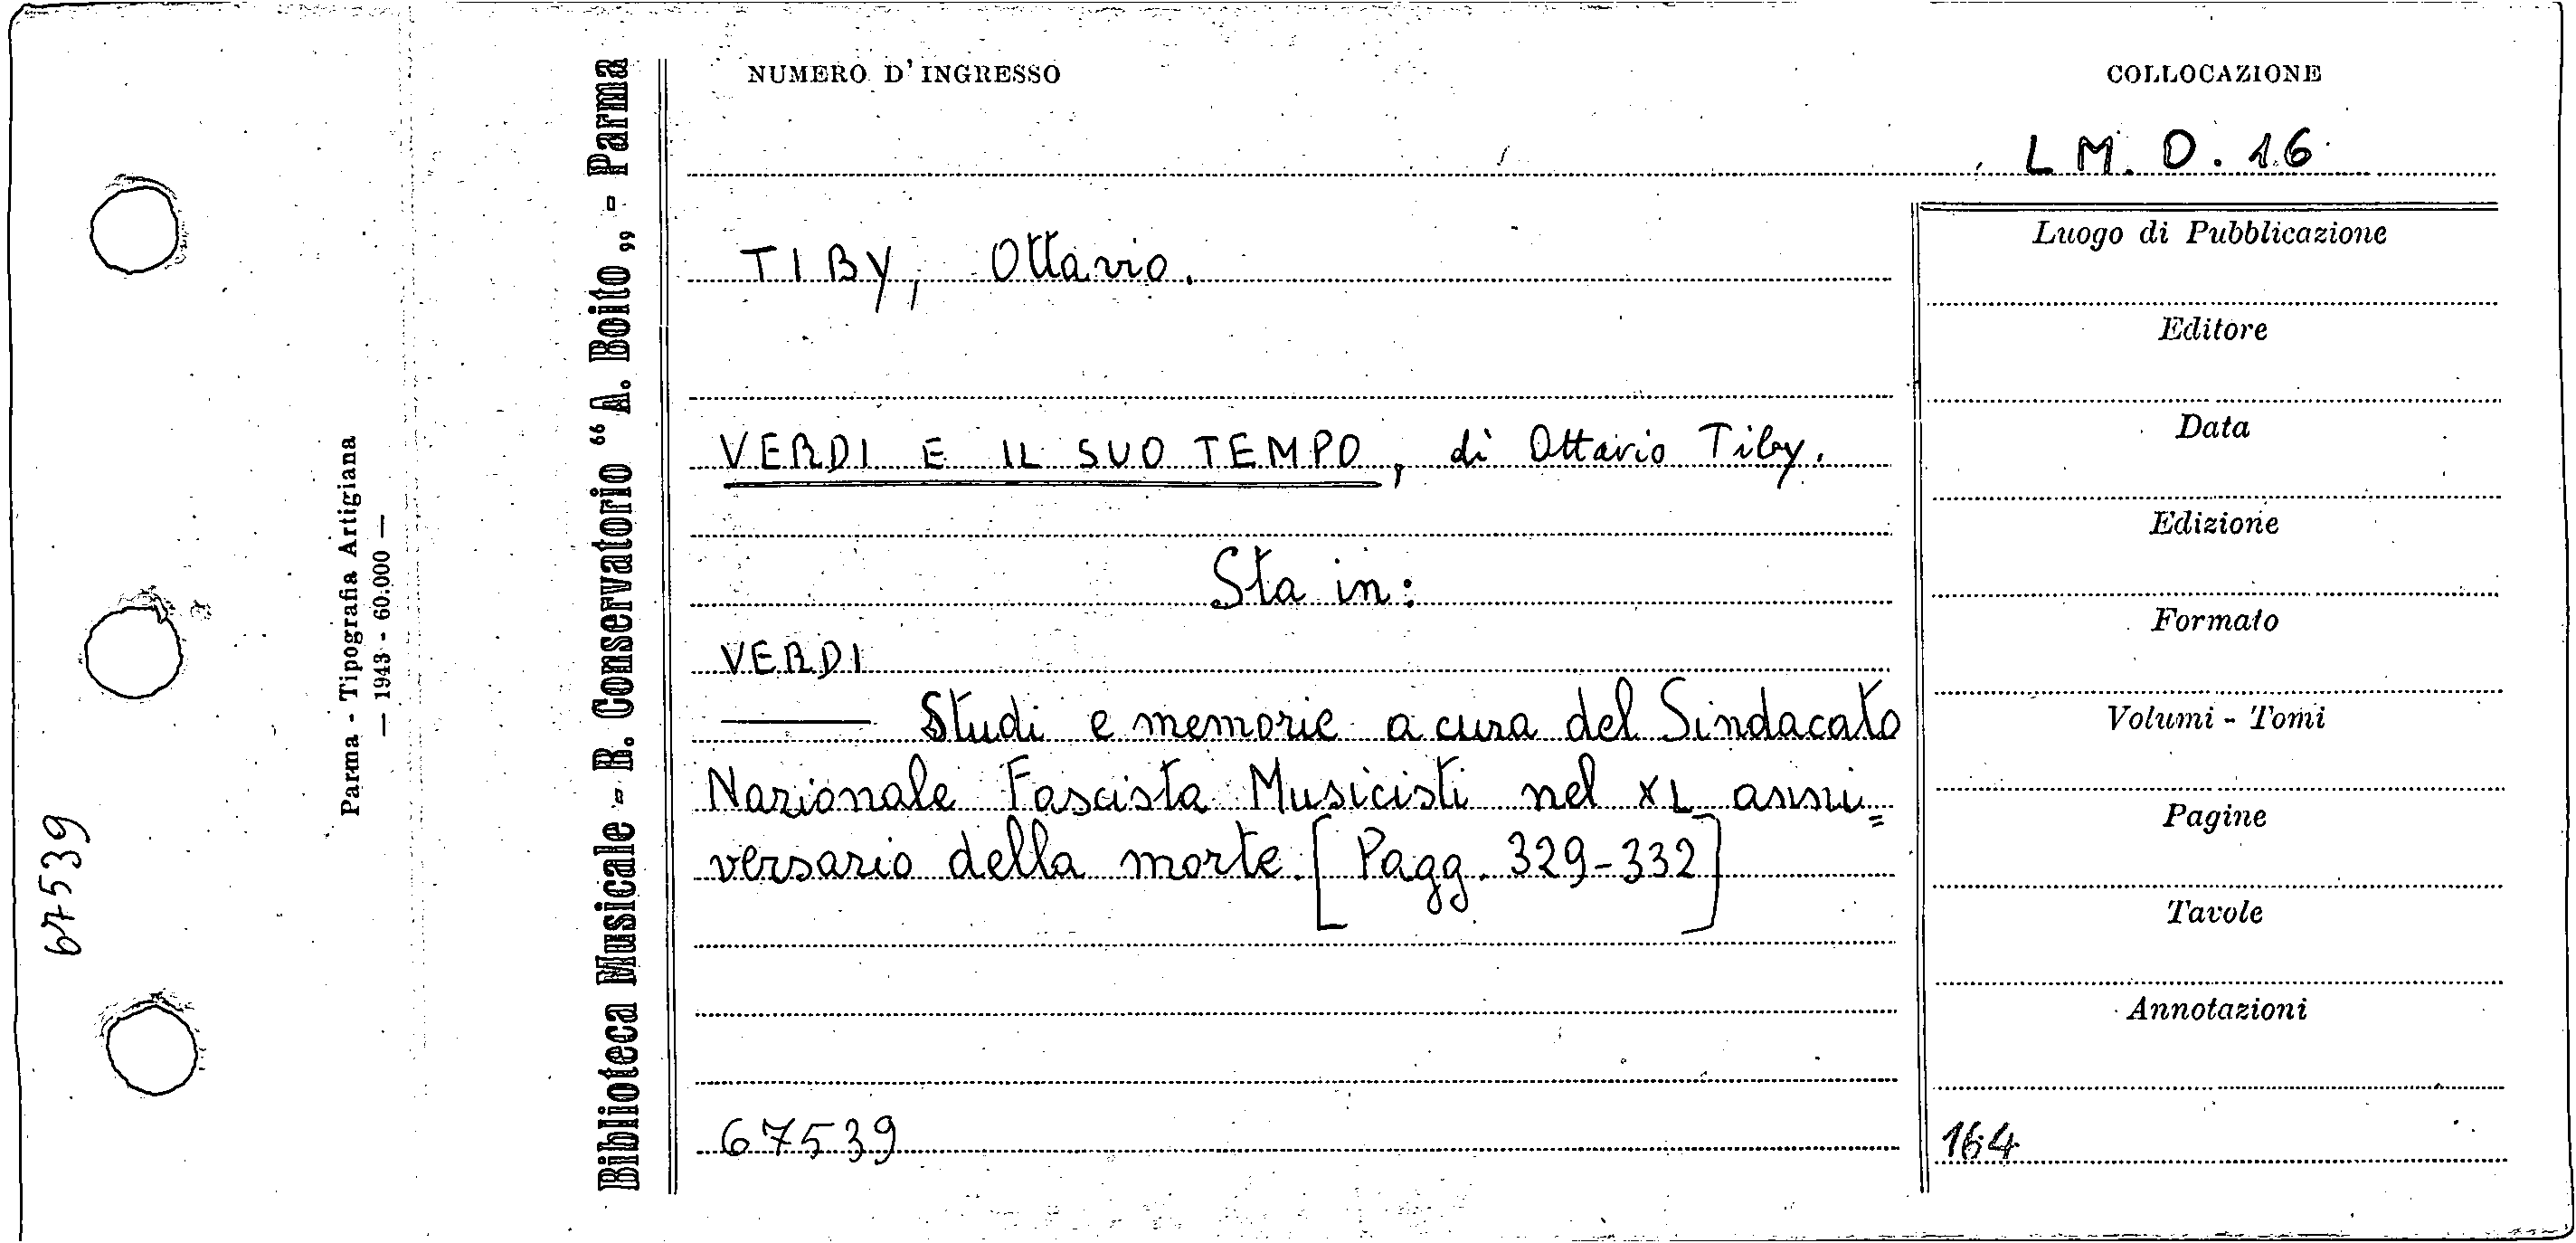 NUMERO D'INGRESSO
COLLOCAZIONE
LM. D. 16
TIBY, Ottavio.
VERDI E IL SUO TEMPO, di Ottavio Tiby.
Sta in:
VERDI
——— Studi e memorie a cura del Sindacato
Nazionale Fascista Musicisti nel XL anni=
versario della morte. [Pagg. 329-332]
67539
Luogo di Pubblicazione
Editore
Data
Edizione
Formato
Volumi - Tomi
Pagine
Tavole
Annotazioni
164
Biblioteca Musicale - R. Conservatorio “A. Boito„ - Parma
Parma - Tipografia Artigiana
— 1943 - 60.000 —
67539